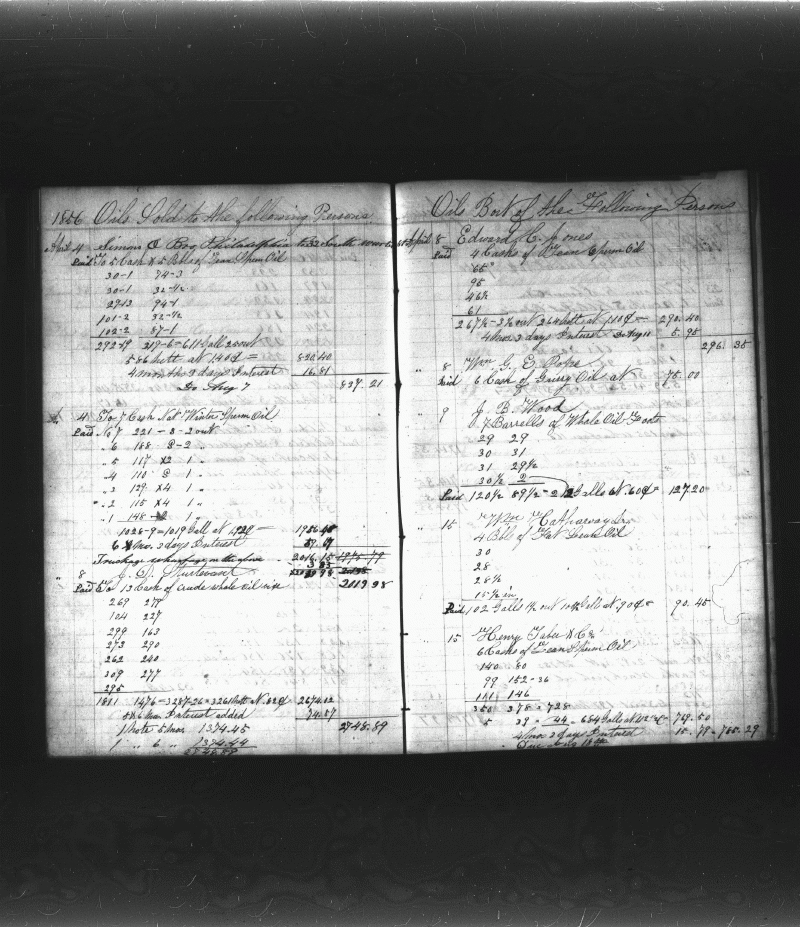 1856 Oils Sold to the following Persons
April 4 Simons & Bro Philadelphia No 32 South
Paid To 5 Cask & 5 Bbls of Lean Spum Oil
30-1 74-3
30-1 32-1/2
29-13 94-1
101-2 32-1/2
102-2 87-1
292-19 219-6=611 Gall 25 out
586 nett at 140¢ = 820.40
4 months 3 days Interest 16.81
Due Aug 7 837.21
4 To 7 Cask Nat Winter Spum Oil
Paid No 7 221-3-2 out
" 6 188 2 "
" 5 117 x2 1 "
" 4 110 1 "
" 3 129 x4 1 "
" 2 115 x4 1 "
" 1 148
1028-9=1019 Gall at 192¢ 1956.48
6 mo. 3 days Interest
Truckage on the above 2016.15
3.83
" 8 J. D. Sturtevant 2019.98
Paid To 13 Cask of crude whale oil
269 279
104 227
299 163
273 290
262 240
309 277
295
1811 1476=3287-26=3261 Nett at 82¢ 2674.02
5 & 6 mo. Interest added 74.87
1 Note 5 mos 1374.45 2748.89
1 " 6 " 1374.44
2748.89
Oils Bo't of the Following Persons
April 8 Edward C. Jones
Paid 4 Casks of Lean Spum Oil
65
95
46½
61
267½-3½ out 264 nett at 110¢= 290.40
4 mo. 3 days Interest Due Aug 11 5.95
296.35
" 8 Wm G. E. Pope
Paid 6 Cask of Gurry Oil at 75.00
" 9 J. B. Wood
7 Barrells of Whale Oil Foots
29 29
30 31
31 29½
30½ 2
Paid 120½ 89½-2 Galls at 60¢= 127.20
" 15 Wm Hathaway Jr
4 Bbl of Oil
30
28
28½
15½ in
Paid 102 Galls 1½ out 100½ Gall at 90¢= 90.45
15 Henry Taber & Co
6 Casks of Lean Spum Oil
140 80
99 152-36
111 146
350 378=728
5 39 = 44 = 684 Galls at 769.50
4 mo. 3 days Interest 15.79=785.29
Due